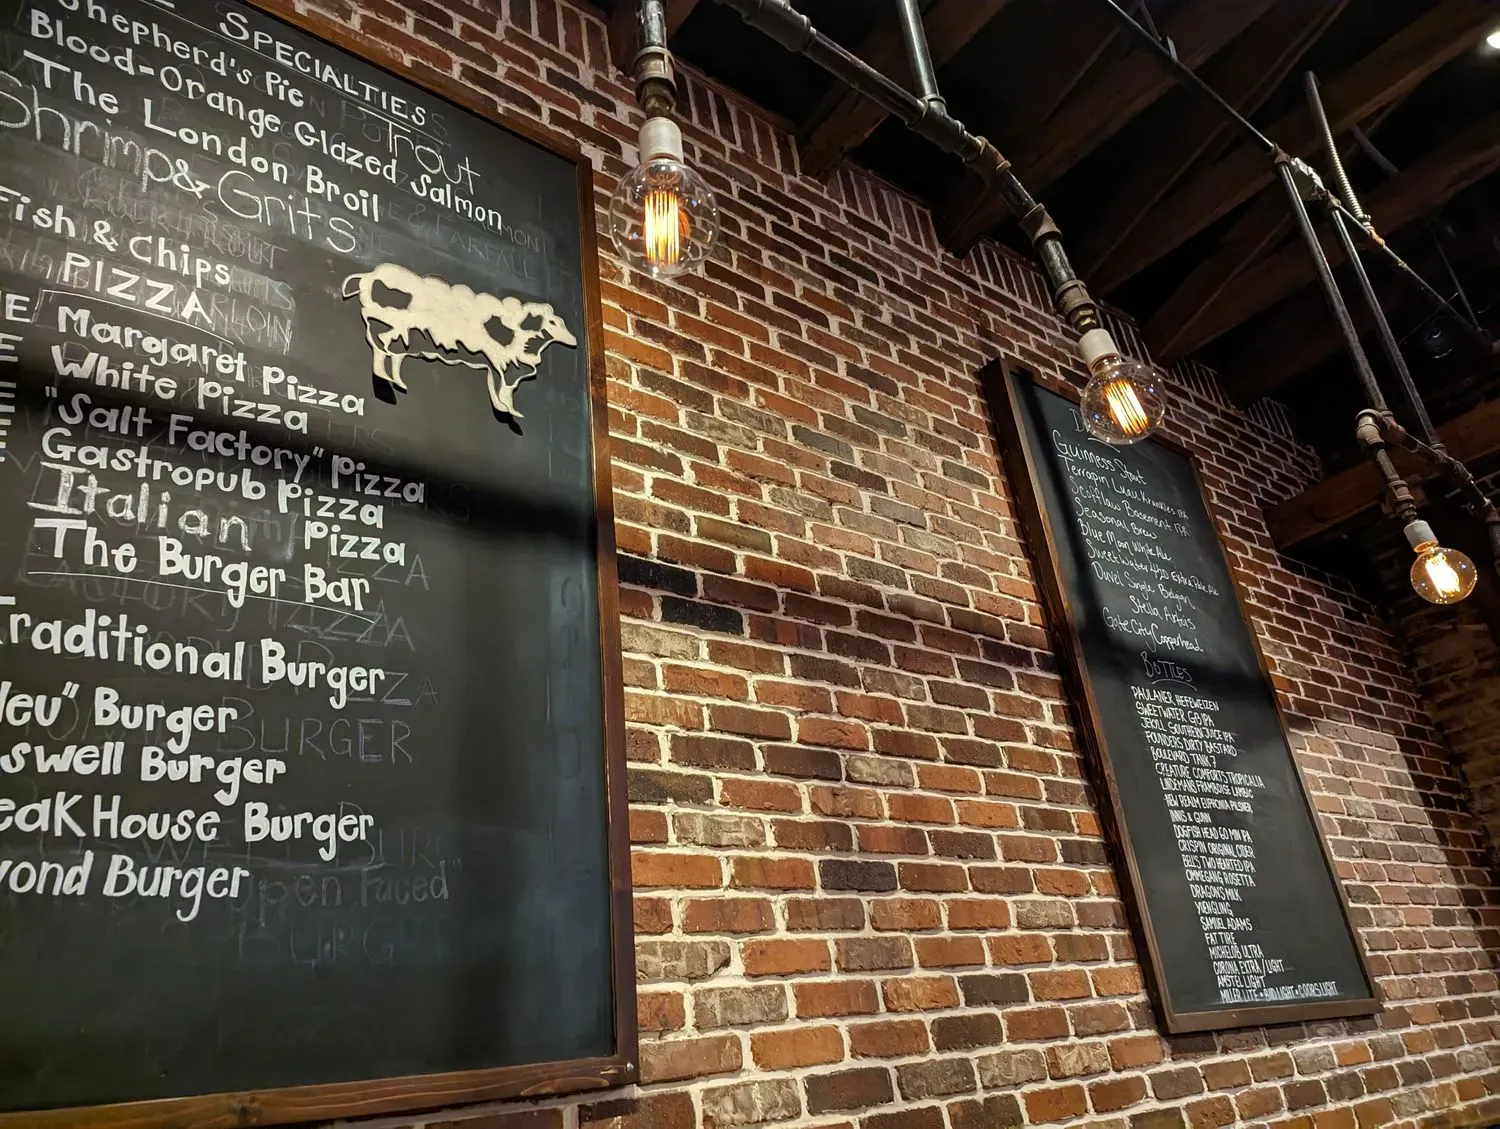 SPECIALTIES
Shepherd's Pie
Trout
Blood-Orange Glazed Salmon
The London Broil
Shrimp & Grits
Fish & Chips
PIZZA
Margaret Pizza
White Pizza
"Salt Factory" Pizza
Gastropub Pizza
Italian Pizza
The Burger Bar
Traditional Burger
leu" Burger
swell Burger
eak House Burger
yond Burger
Guinness Stout
Terrapin Luau Krunkles IPA
Scofflaw Basement IPA
Seasonal Brew
Blue Moon White Ale
Sweetwater 420 Extra Pale Ale
Duvel Single Belgian
Stella Artois
Gate City Copperhead
BOTTLES
PAULANER HEFEWEIZEN
SWEETWATER G13 IPA
JEKYLL SOUTHERN JUICE IPA
FOUNDERS DIRTY BASTARD
BOULEVARD TANK 7
CREATURE COMFORTS TROPICALIA
LINDEMANS FRAMBOISE LAMBIC
NEW REALM EUPHONIA PILSNER
INNIS & GUNN
DOGFISH HEAD 60 MIN IPA
CRISPIN ORIGINAL CIDER
BELL'S TWO HEARTED IPA
OMMEGANG ROSETTA
DRAGON'S MILK
YUENGLING
SAMUEL ADAMS
FAT TIRE
MICHELOB ULTRA
CORONA EXTRA / LIGHT
AMSTEL LIGHT
MILLER LITE • BUD LIGHT • COORS LIGHT